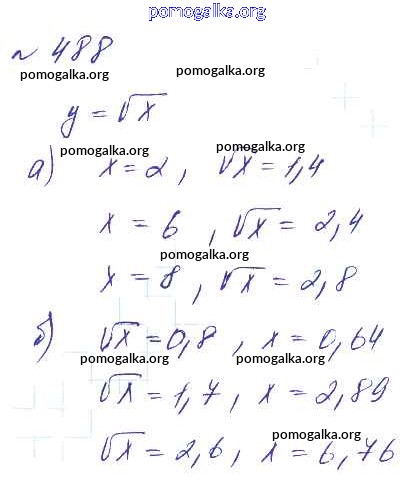 pomogalka.org
№ 488
pomogalka.org pomogalka.org
y = √x
pomogalka.org pomogalka.org
а) x = 2, √x = 1,4
x = 6, √x = 2,4
pomogalka.org
x = 8, √x = 2,8
б) √x = 0,8, x = 0,64
pomogalka.org pomogalka.org
√x = 1,7, x = 2,89
pomogalka.org
√x = 2,6, x = 6,76